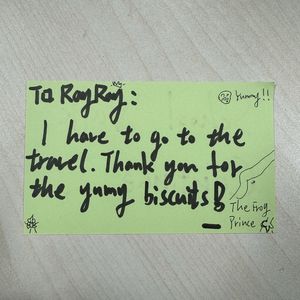 To RayRay:
Yummy!!
I have to go to the
travel. Thank you for
the yumy biscuits!
The Frog
Prince